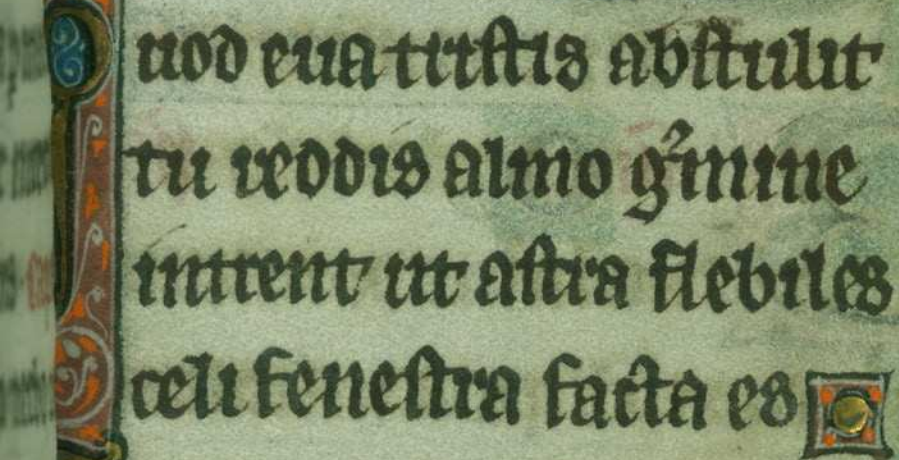 uod eua tristis abstulit
tu reddis almo g̾mine
intrent ut astra flebiles
celi fenestra facta es